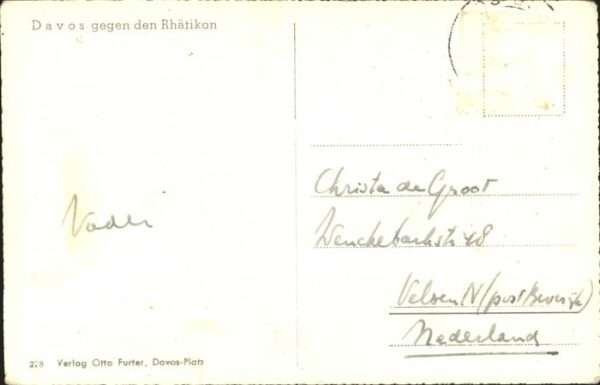 Davos gegen den Rhätikon
Vader
Christa de Groot
Wenckebachstr 48
Velsen N (post Beverwijk)
Nederland
228 Verlag Otto Furter, Davos-Platz